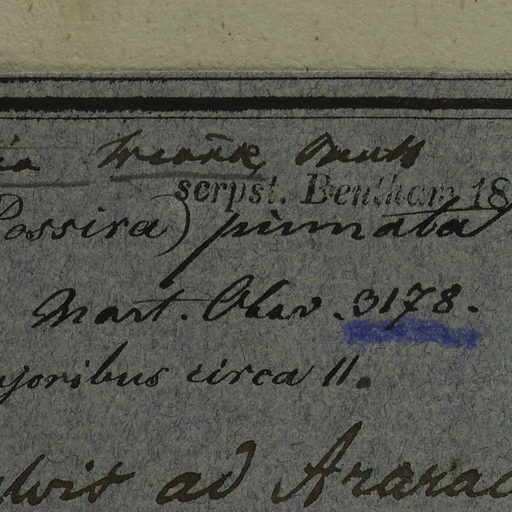 serpst. Bentham 18
Possira) pinnata
Mart. Obsv. 3178.
ajoribus circa 11.
ad Ararac